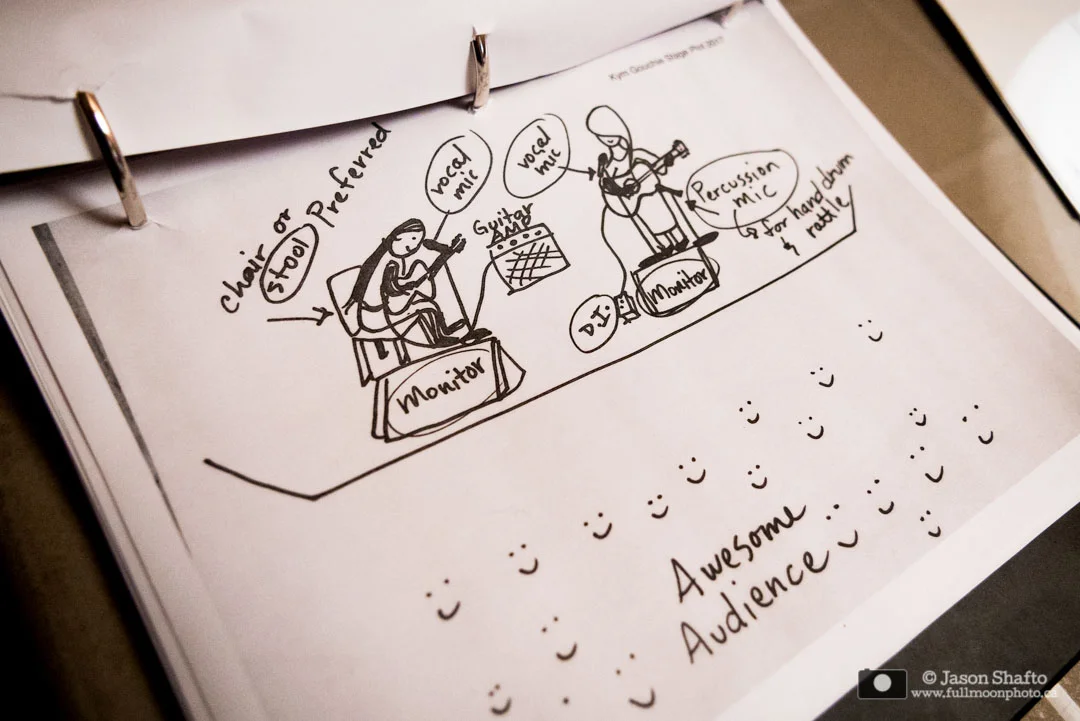 Kym Gouchie Stage Plot 2017
chair or
stool Preferred
vocal
mic
Guitar
AMP
vocal
mic
Percussion
mic
for hand drum
& rattle
D.I.
Monitor
Monitor
Awesome
Audience
© Jason Shafto
www.fullmoonphoto.ca